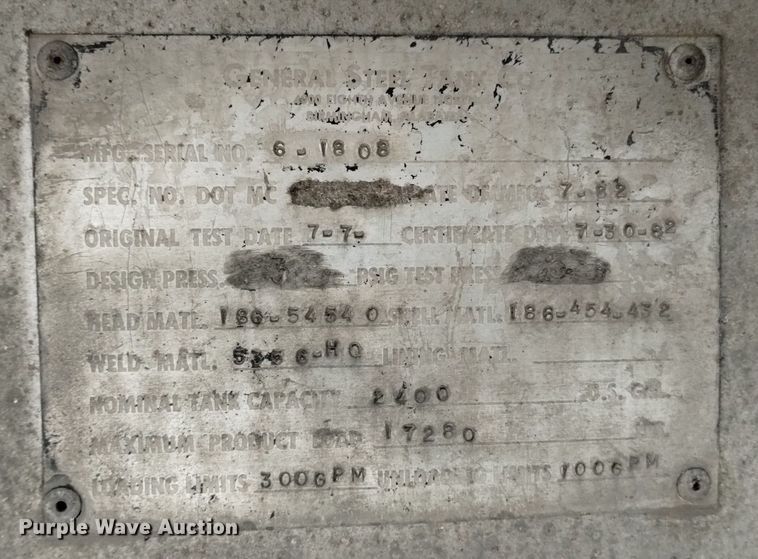 GENERAL STEEL TANK CO
EIGHTH AVENUE
BIRMINGHAM,
MFG. SERIAL NO. 6-1808
SPEC. NO. DOT MC DATE OF MFG. 7-82
ORIGINAL TEST DATE 7-7- CERTIFICATE DATE 7-30-82
DESIGN PRESS. PSIG TEST PRESS
HEAD MATL. 186-54540 SHELL MATL. 186-454-432
WELD. MATL. 5356-HQ LINING MATL.
NOMINAL TANK CAPACITY 2400 U.S. GAL.
MAXIMUM PRODUCT LOAD 17280
LOADING LIMITS 300GPM UNLOADING LIMITS 100GPM
Purple Wave Auction